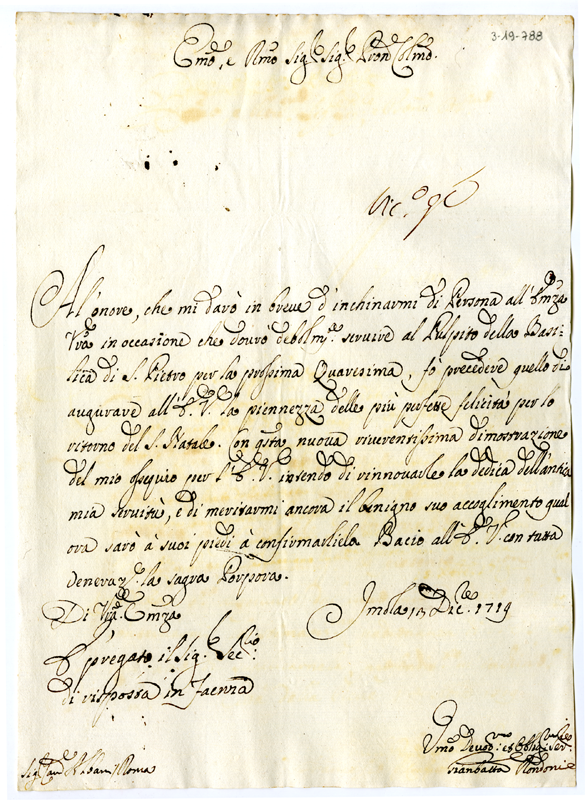 3-19-788
Em̃o, e Rm̃o Sig.r Sig.r Pron̄ Colmo.
All'onore, che mi darò in breve d'inchinarmi di Persona all'Em̃za
Vrã in occasione che dovrò debolm.te servire al Pulpito della Basi-
lica di S. Pietro per la prossima Quaresima, fò precedere quello di
augurare all'E. V. la pienezza delle più perfette felicità per lo
ritorno del S. Natale. Con qstã nuova riverentissima dimostrazione
del mio ossequio per l'E. V. intendo di rinnovarle la dedica dell'antica
mia servitù, e di meritarmi ancora il benigno suo accoglimento qual
ora sarò à suoi piedi à confirmarliela. Bacio all'E. V. con tutta
la sagra Porpora.
Di Vrã Em̃za
Imola 13 Dic.re 1719
È pregato il Sig.r Sec.rio
di risposta in Faenza
Sig.r Card. Albani Roma
Umo Devot.mo et Oblig.mo Ser.
Gianbatta